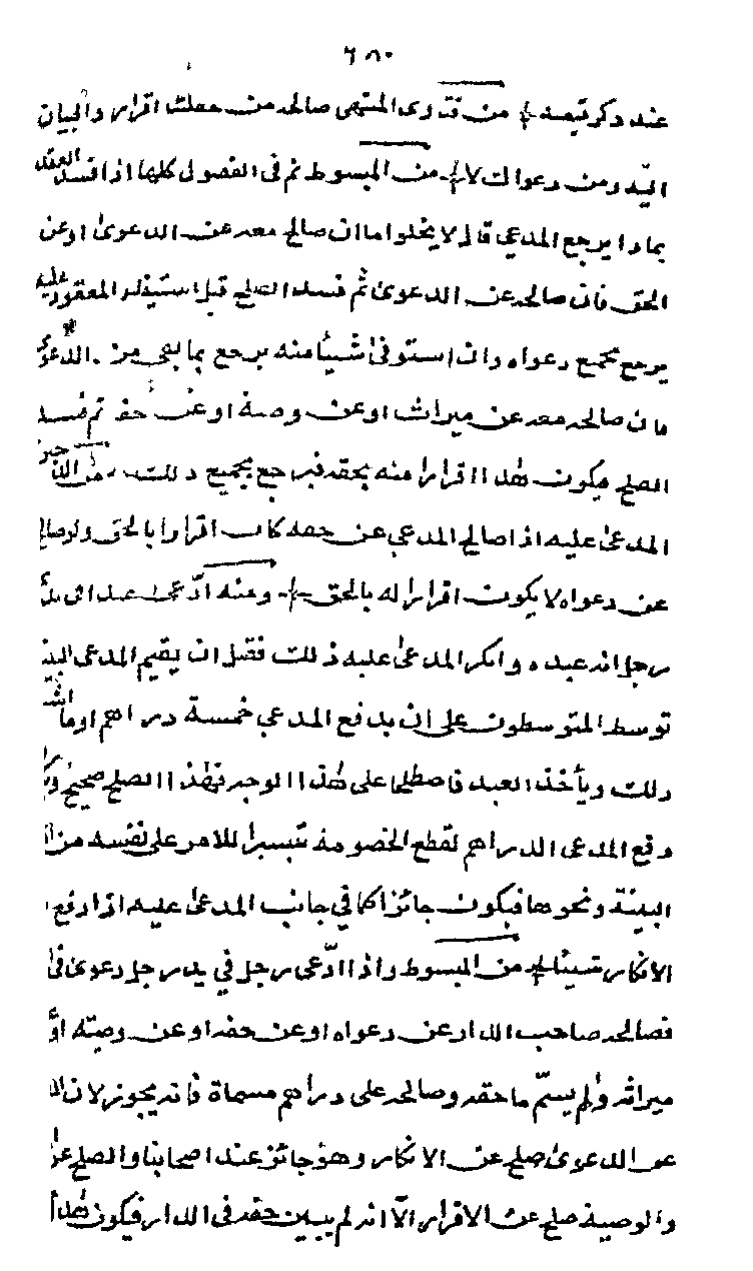 ٦٨٠
عند ذكر قيمته من فتاوى المنتهى صالحه من حقك اقرار والبيان
اليه ومن دعواك لا من المبسوط ثم فى الفصول كلها اذا فسد العقد
بماذا يرجع المدعي قال لا يخلوا اما ان صالح معه عن الدعوى او عن
الحق فان صالحه عن الدعوى ثم فسد الصلح قبل استيفاء المعقود عليه
يرجع بجميع دعواه وان استوفى شيئا منه يرجع بما بقى من الدعوى
فان صالحه معه عن ميراث او عن وصية او عن حقه ثم فسد
الصلح فيكون هذا اقرارا منه بحقه فيراجع بجميع ذلك من
المدعى عليه اذا صالح المدعي عن حقه كان اقرارا بالحق ولو صالح
عن دعواه لا يكون اقرارا له بالحق ومنه ادّعى عبدا فى يد
رجل انه عبده وانكر المدعى عليه ذلك فقبل ان يقيم المدعى البينة
توسط المتوسطون على ان يدفع المدعي خمسة دراهم او ما اشبه
ذلك ويأخذ العبد فاصطلحا على هذا الوجه فهذا الصلح صحيح
دفع المدعى الدراهم لقطع الخصومة تيسيرا للامر على نفسه من
البينة ونحوها فيكون جائزا كما في جانب المدعى عليه اذا دفع
الانكار شيئا من المبسوط واذا ادّعى رجل في يد رجل دعوى فى
فصالحه صاحب الدار عن دعواه او عن حقه او عن وصيته او
ميراثه ولم يسمّ ما حقه وصالحه على دراهم مسماة فانه يجوز لان
عن الدعوى صلح عن الانكار وهو جائز عند اصحابنا والصلح عن
والوصية صلح عن الاقرار الّا انه لم يبين حقه فى الدار فيكون هذا